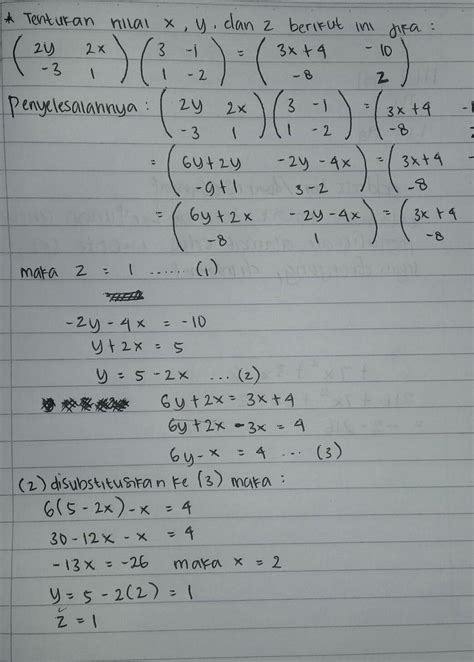 * Tentukan nilai x, y, dan z berikut ini jika :
(2y 2x) (3 -1) = (3x+4 -10)
(-3 1) (1 -2) (-8 z)
Penyelesaiannya : (2y 2x) (3 -1) = (3x+4
(-3 1) (1 -2) (-8
= (6y+2y -2y-4x) = (3x+4
(-9+1 3-2) (-8
= (6y+2x -2y-4x) = (3x+4
(-8 1) (-8
maka z = 1 ...... (1)
-2y-4x = -10
y+2x = 5
y = 5-2x ... (2)
6y+2x = 3x+4
6y+2x-3x = 4
6y-x = 4 ... (3)
(2) disubstitusikan ke (3) maka :
6(5-2x)-x = 4
30-12x-x = 4
-13x = -26 maka x = 2
y = 5-2(2) = 1
z = 1